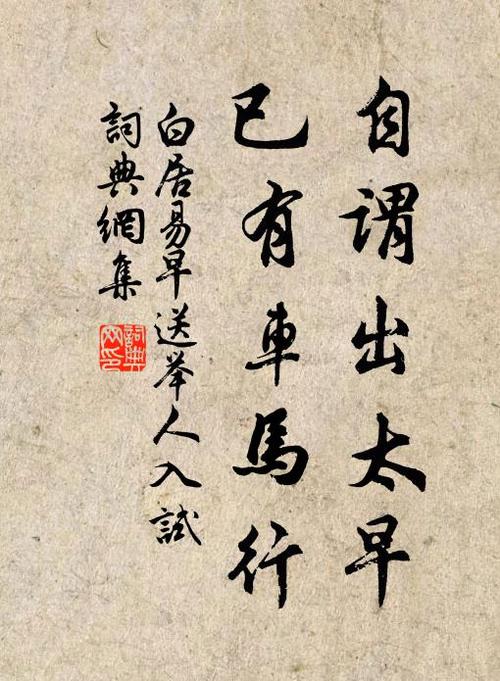 自谓出太早
已有車馬行
白居易早送举人入試
詞典網集
詞典网印